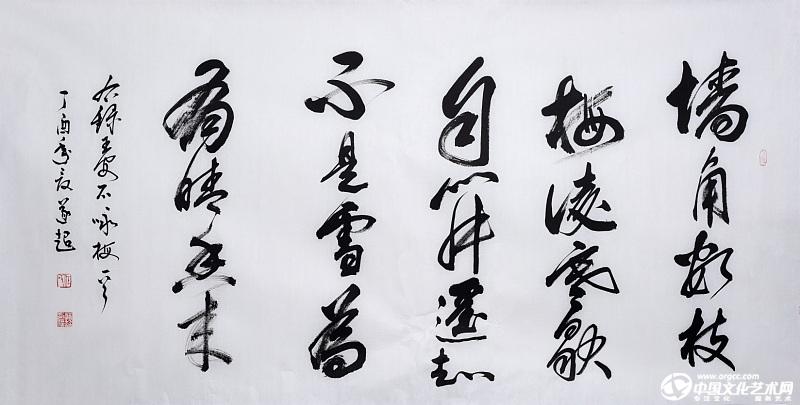 墙角数枝
梅凌寒独
自开遥知
不是雪为
有暗香来
右録王安石咏梅一首
丁酉年夏遂起
www.orgcc.com
中国文化艺术网
专注文化 服务艺术